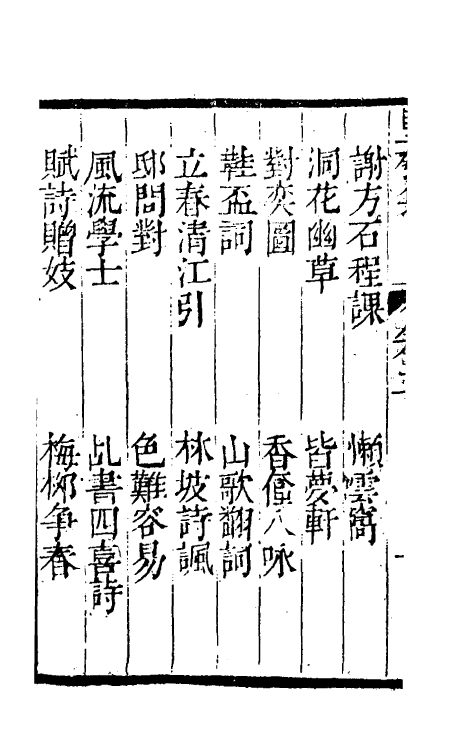 謝方石程課　懶雲窩
洞花幽草　皆夢軒
對奕圖　香奩八咏
鞋盃詞　山歌翻詞
立春清江引　林坡詩諷
邸問對　色難容易
風流學士　乩書四喜詩
賦詩贈妓　梅柳爭春